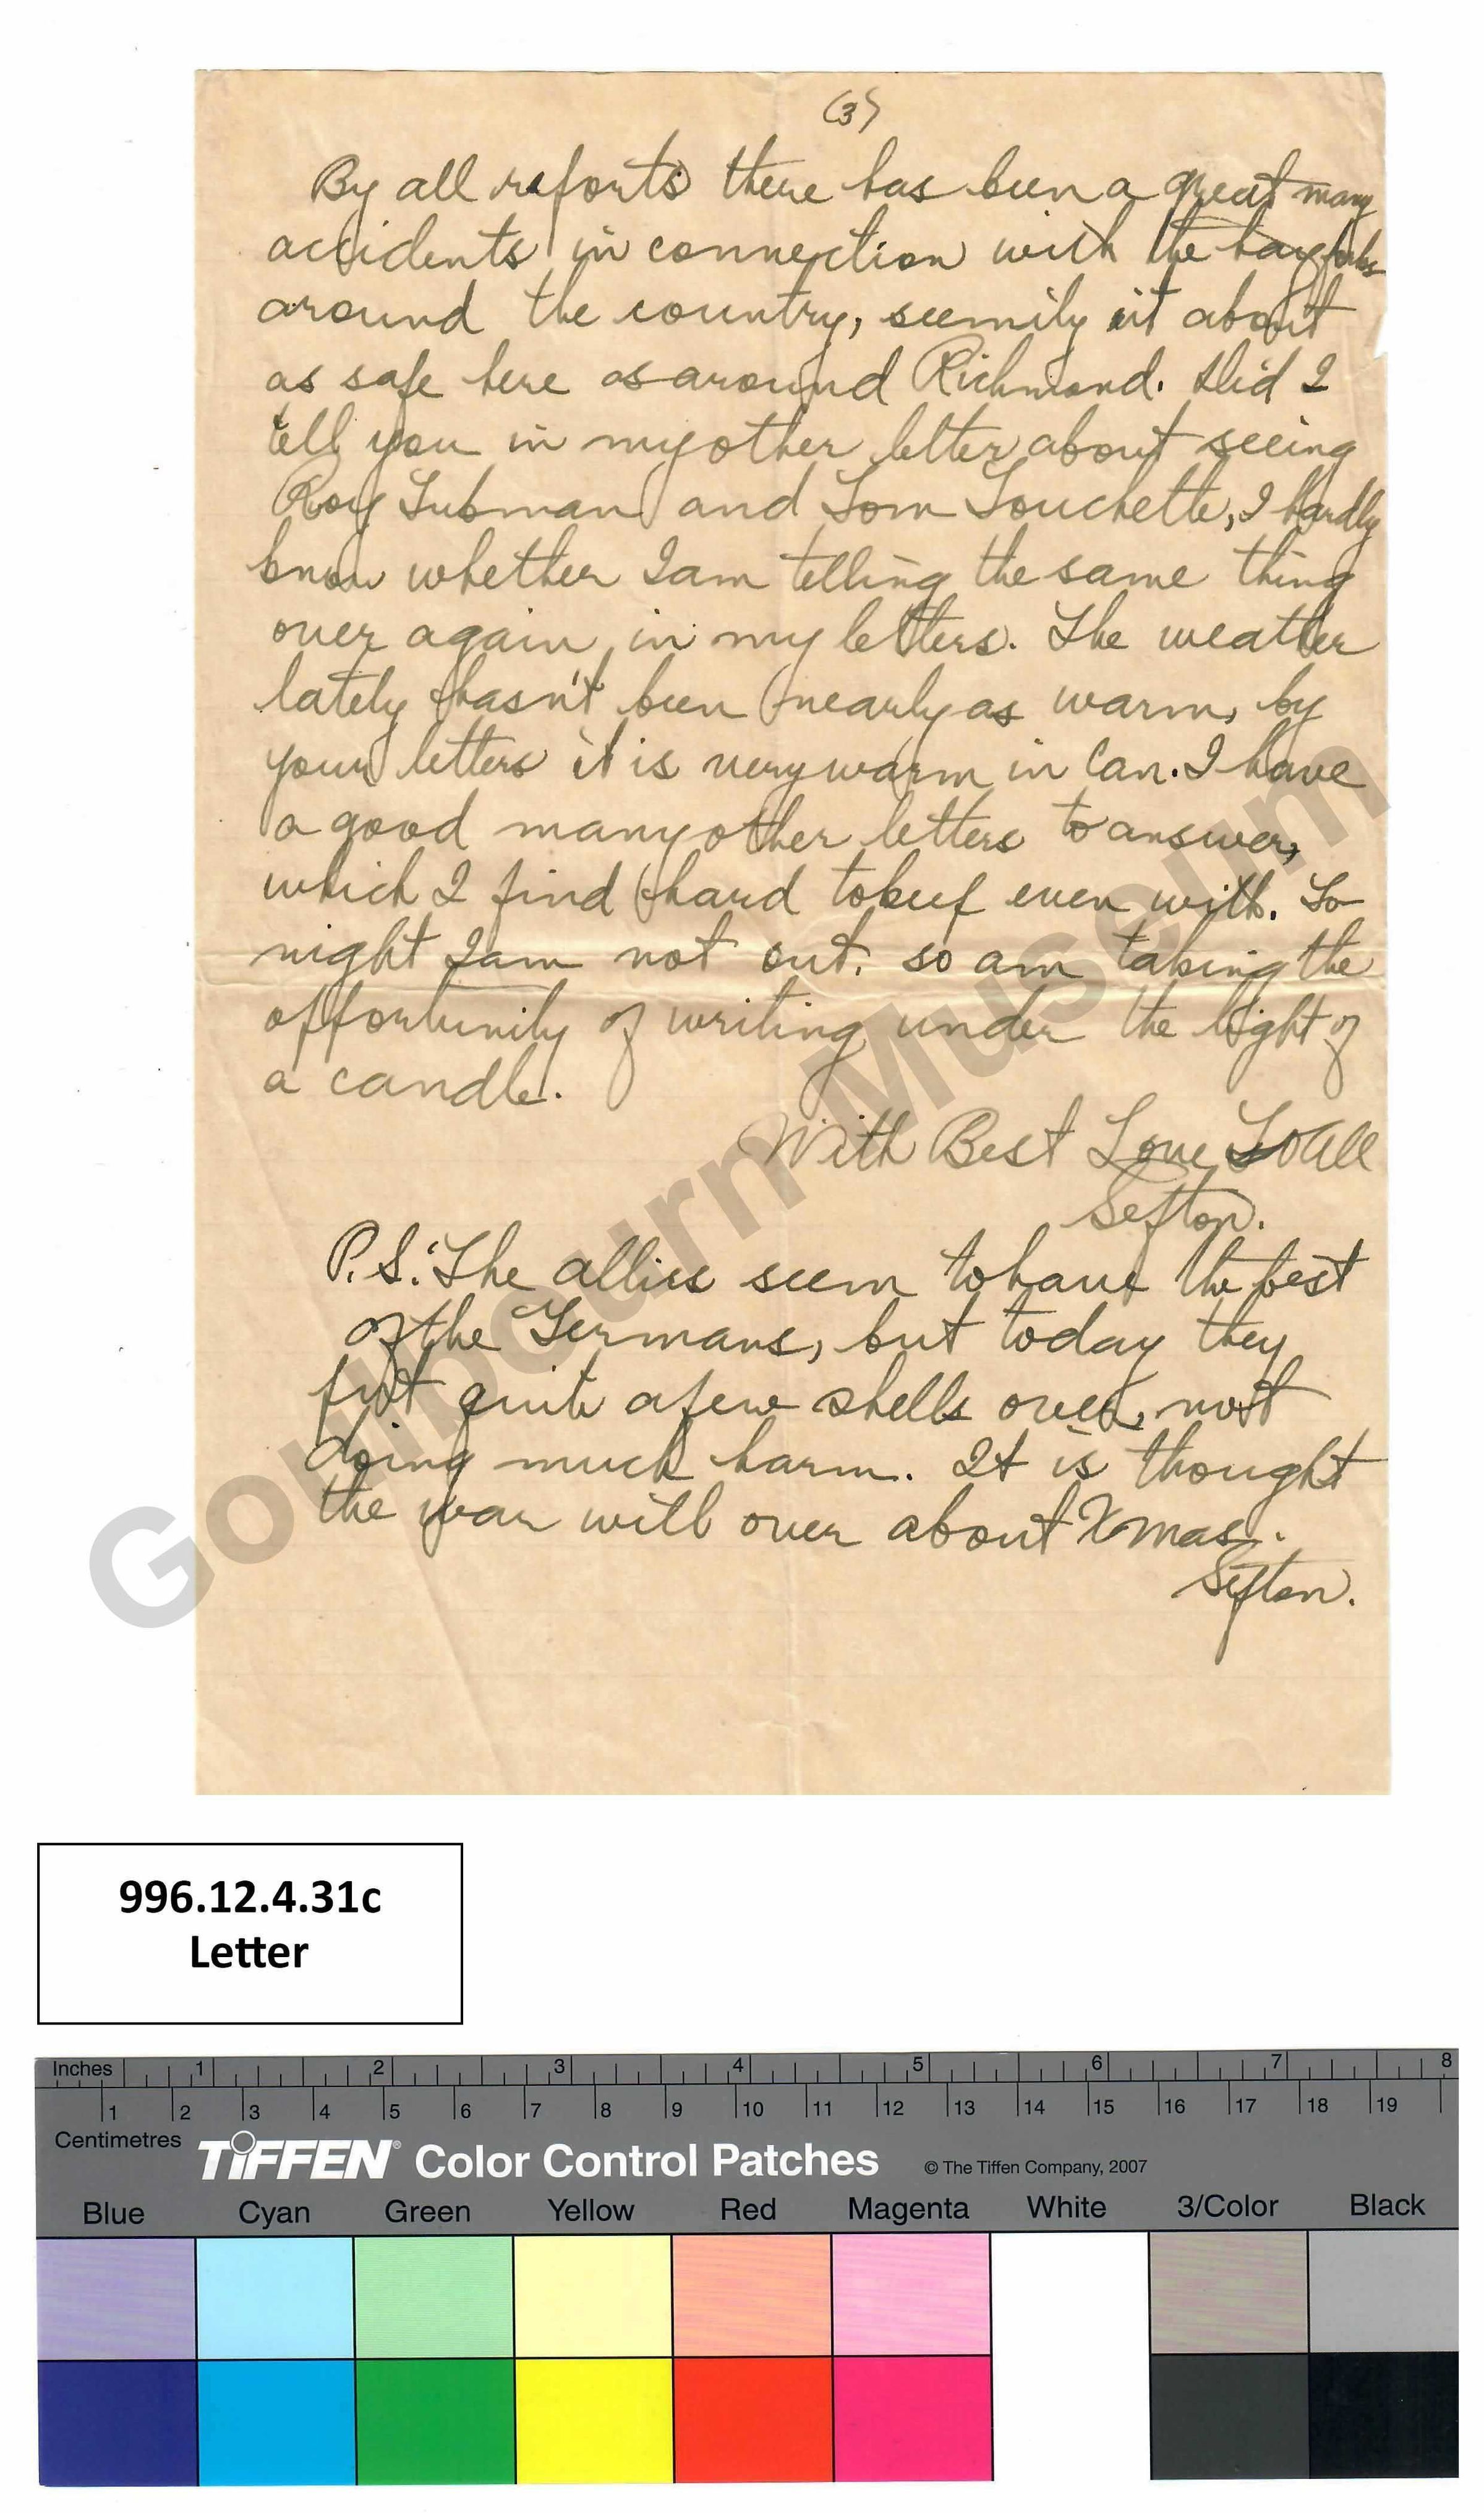 (3)
By all reports there has been a great many
accidents in connection with the hay forks
around the country, seemily it about
as safe here as around Richmond. Did I
tell you in my other letter about seeing
Roy Tubman and Tom Touchette, I hardly
know whether I am telling the same thing
over again in my letters. The weather
lately hasn't been nearly as warm, by
your letters it is very warm in Can. I have
a good many other letters to answer,
which I find hard to keep even with. To
night I am not out. so am taking the
opportunity of writing under the light of
a candle.
With Best Love To All
Sefton.
P.S. The allies seem to have the best
of the Germans, but today they
put quite a few shells over, not
doing much harm. It is thought
the war will over about Xmas.
Sefton.
Goulbourn Museum
996.12.4.31c
Letter
Inches 1 2 3 4 5 6 7 8
1 2 3 4 5 6 7 8 9 10 11 12 13 14 15 16 17 18 19
Centimetres
TIFFEN® Color Control Patches © The Tiffen Company, 2007
Blue Cyan Green Yellow Red Magenta White 3/Color Black